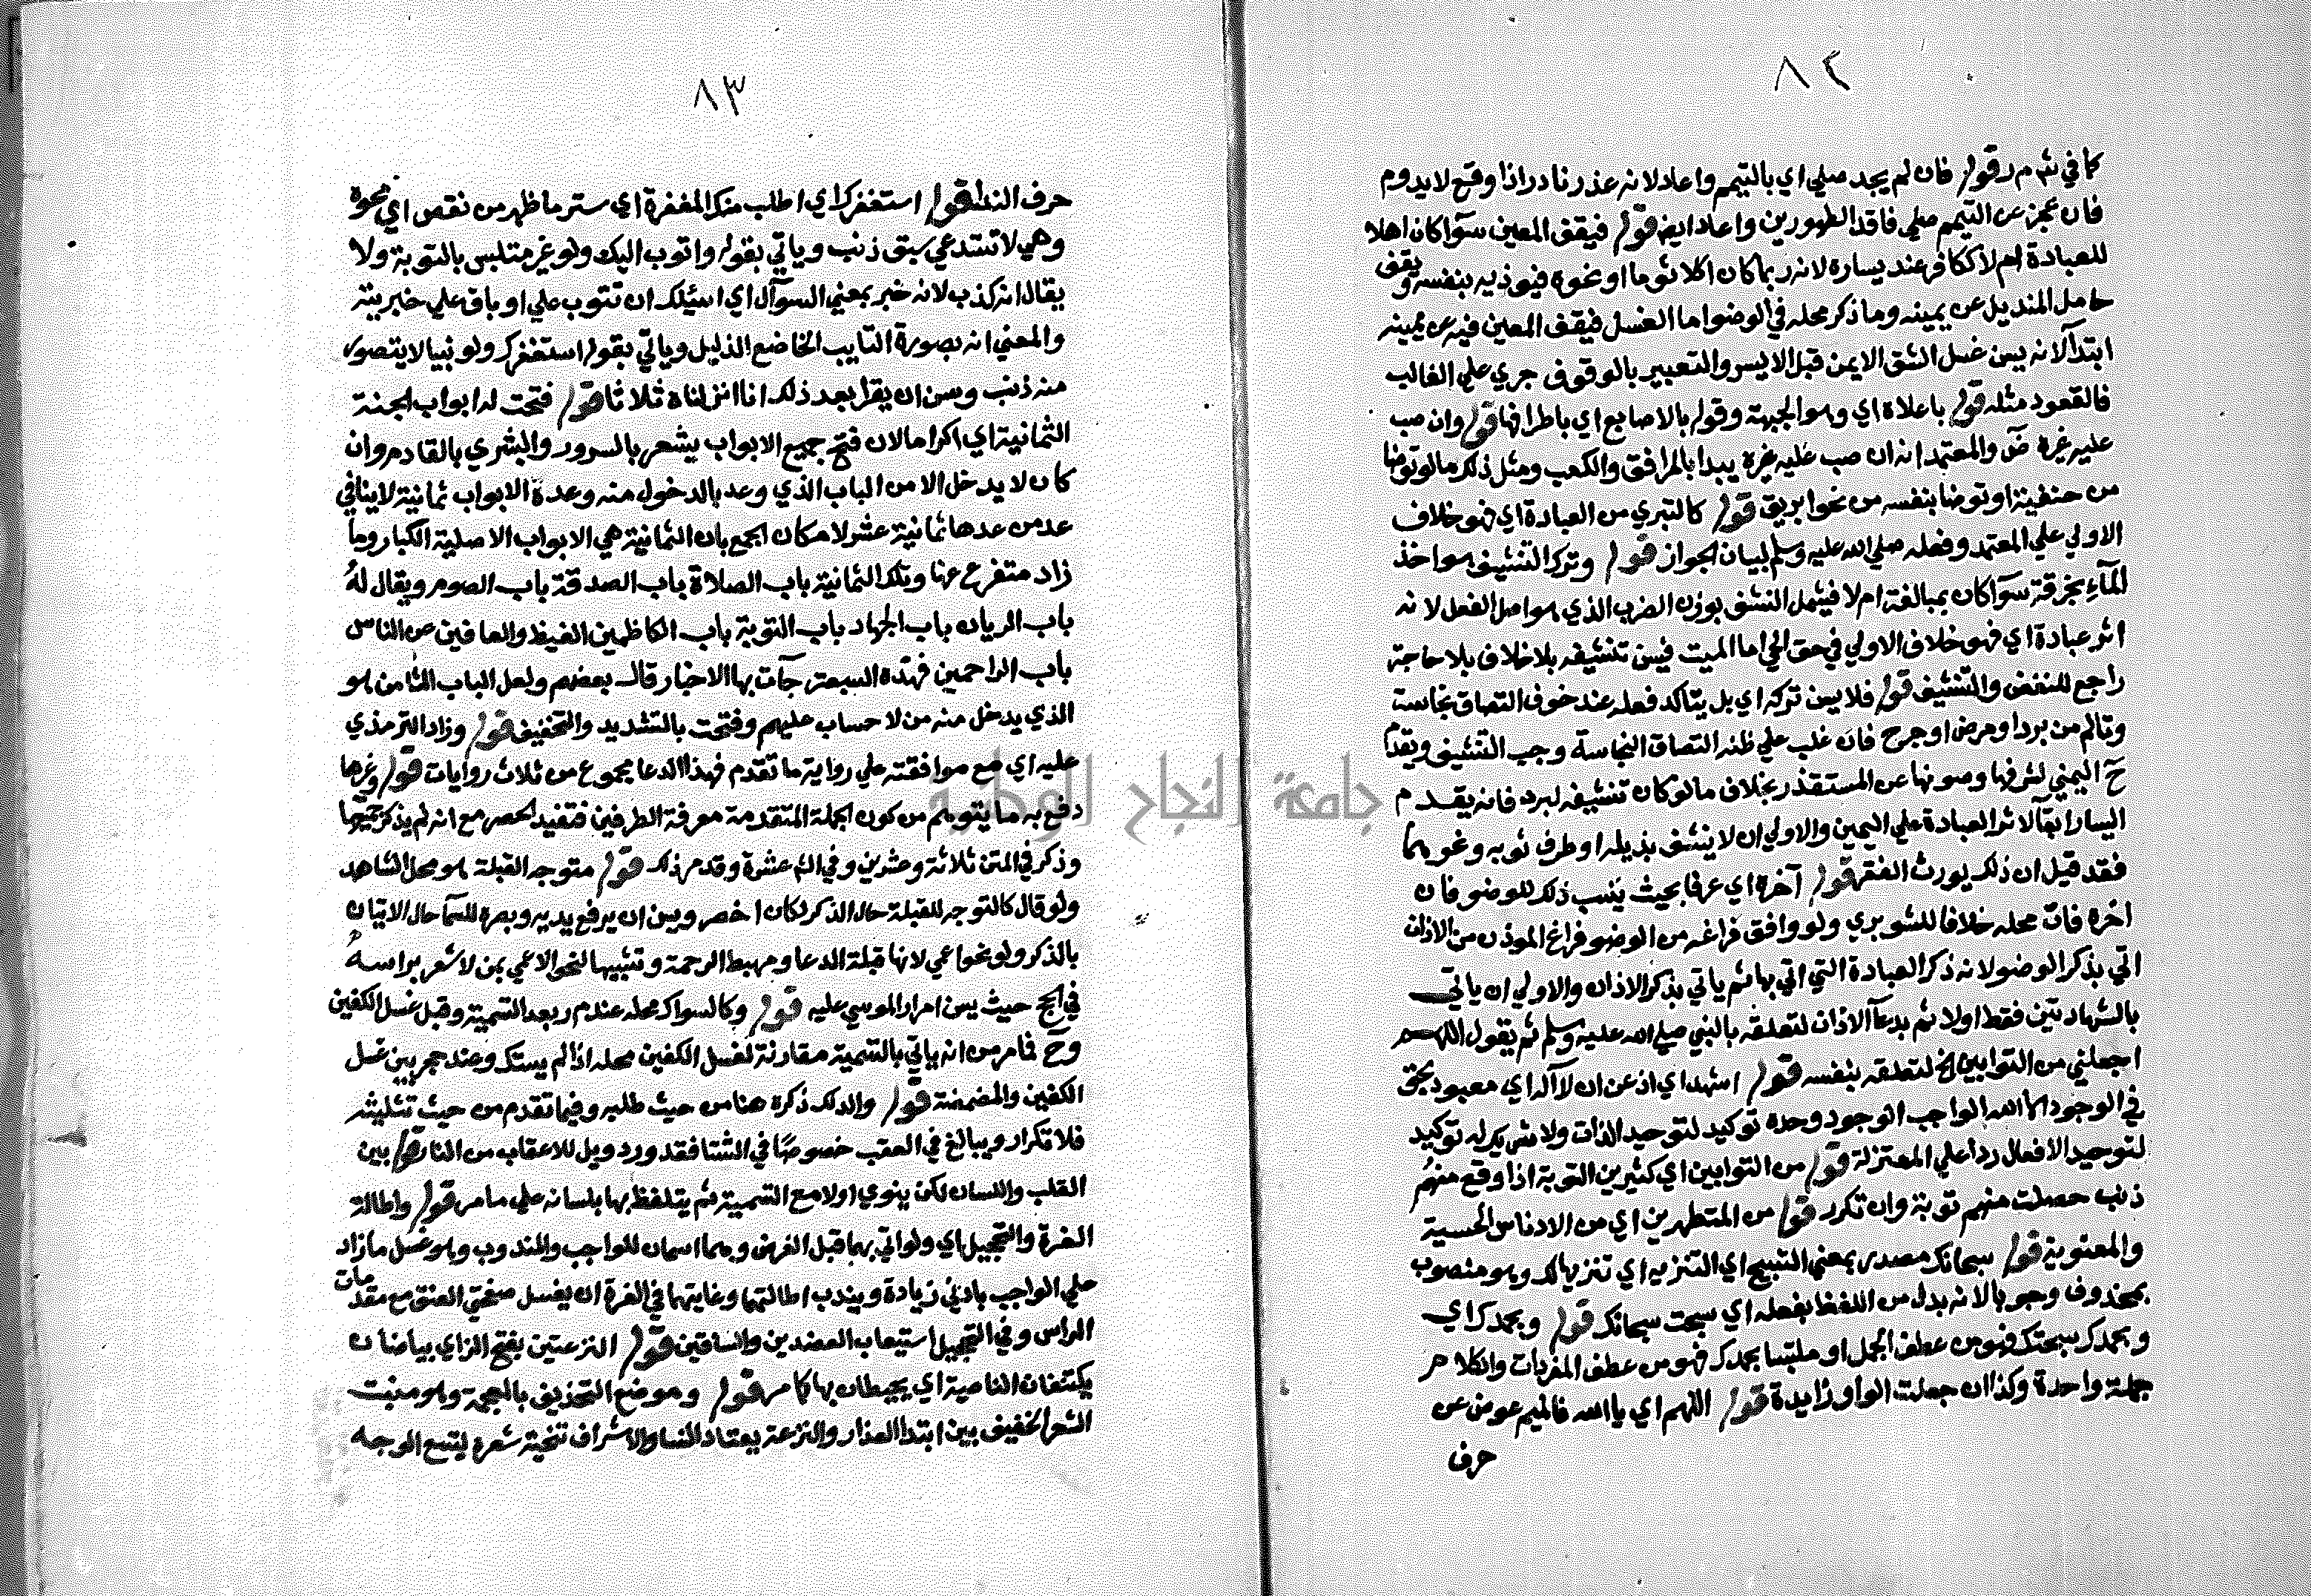 ٨٢
كما في شرح م ر قوله فان لم يجد صلي اي بالتيمم واعاد لانه عذر نادر اذا وقع لا يدوم
فان عجز عن التيمم صلي فاقد الطهورين واعاد ايضا قوله فيقف المعين سوآ كان اهلا
للعبادة ام لا ككافر عند يساره لانه ربما كان اكلا ثوما او نحوه فيوذيه بنفسه ويقف
حامل المنديل عن يمينه وما ذكر محله في الوضو اما الغسل فيقف المعين فيه عن يمينه
ابتدآ لانه يسن غسل الشق الايمن قبل الايسر والتعبير بالوقوف جري علي الغالب
فالقعود مثله قوله باعلاه اي وهو الجبهة وقوله بالاصابع اي باطرافها قوله وان صب
عليه غيره ض والمعتمد انه ان صب عليه غيره يبدا بالمرافق والكعب ومثل ذلك ما لو توضا
من حنفية او توضا بنفسه من نحو ابريق قوله كالتبري من العبادة اي فهو خلاف
الاولي علي المعتمد وفعله صلي الله عليه وسلم لبيان الجواز قوله وترك التنشيف هو اخذ
المآء بخرقة سوآ كان بمبالغة ام لا فيشمل النشف بوزن الضرب الذي هو اصل الفعل لانه
اثر عبادة اي فهو خلاف الاولي في حق الحي اما الميت فيسن تنشيفه بلا خلاف بلا حاجة
راجع للنفض والتنشيف قوله فلا يسن تركه اي بل يتاكد فعله عند خوف التصاق نجاسة
وتالم من برد او مرض او جرح فان غلب علي ظنه التصاق النجاسة وجب التنشيف ويقدم
ح اليمني لشرفها وصونها عن المستقذر بخلاف ما لو كان تنشيفه لبرد فانه يقدم
اليسار ابقآ لاثر العبادة علي اليمين والاولي ان لا ينشف بذيله او طرف ثوبه ونحوهما
فقد قيل ان ذلك يورث الفقر قوله آخره اي عرفا بحيث ينسب ذلك للوضو فان
اخره فات محله خلافا للشوبري ولو وافق فراغه من الوضو فراغ الموذن من الاذان
اتي بذكر الوضو لانه ذكر العبادة التي اتي بها ثم ياتي بذكر الاذان والاولي ان ياتي
بالشهادتين فقط اولا ثم بدعآ الاذان لتعلقه بالنبي صلي الله عليه وسلم ثم يقول اللهم
اجعلني من التوابين الخ لتعلقه بنفسه قوله اشهد اي اذعن ان لا آله اي معبود بحق
في الوجود الا الله الواجب الوجود وحده توكيد لتوحيد الذات ولا شريك له توكيد
لتوحيد الافعال ردا علي المعتزلة قوله من التوابين اي كثيرين التوبة اذا وقع منهم
ذنب حصلت منهم توبة وان تكرر قوله من المتطهرين اي من الادناس الحسية
والمعنوية قوله سبحانك مصدر بمعني التسبيح اي التنزيه اي تنزيها لك وهو منصوب
بمحذوف وجوبا لانه بدل من اللفظ بفعله اي سبحت سبحانك قوله وبحمدك اي
وبحمدك سبحتك فهو من عطف الجمل او ملتبسا بحمدك فهو من عطف المفردات والكلام
جملة واحدة وكذا ان جعلت الواو زايدة قوله اللهم اي يا الله فالميم عوض عن
حرف
٨٣
حرف الندا قوله استغفرك اي اطلب منك المغفرة اي ستر ما ظهر من نقص اي محوه
وهي لا تستدعي سبق ذنب وياتي بقوله واتوب اليك ولو غير متلبس بالتوبة ولا
يقال انه كذب لانه خبر بمعني السوآل اي اسئلك ان تتوب علي او باق علي خبريته
والمعني انه بصورة التايب الخاضع الذليل وياتي بقوله استغفرك ولو نبيا لا يتصور
منه ذنب ويسن ان يقرا بعد ذلك انا انزلناه ثلاثا قوله فتحت له ابواب الجنة
الثمانية اي اكراما لان فتح جميع الابواب يشعر بالسرور والبشري بالقادم وان
كان لا يدخل الا من الباب الذي وعد بالدخول منه وعدة الابواب ثمانية لا ينافي
عد من عدها ثمانية عشر لامكان الجمع بان الثمانية هي الابواب الاصلية الكبار وما
زاد متفرع عنها وتلك الثمانية باب الصلاة باب الصدقة باب الصوم ويقال له
باب الريان باب الجهاد باب التوبة باب الكاظمين الغيظ والعافين عن الناس
باب الراحمين فهذه السبعة جآت بها الاخبار قال بعضهم ولعل الباب الثامن هو
الذي يدخل منه من لا حساب عليهم وفتحت بالتشديد والتخفيف قوله وزاد الترمذي
عليه اي مع موافقته علي رواية ما تقدم فهذا الدعا مجموع من ثلاث روايات قوله وغيرها
دفع به ما يتوهم من كون الجملة المتقدمة معرفة الطرفين فتفيد الحصر مع انه لم يذكر جميعها
وذكر في المتن ثلاثة وعشرين وفي الش عشرة وقدم ذلك قوله متوجه القبلة هو محل الشاهد
ولو قال كالتوجه للقبلة حال الذكر لكان اخصر ويسن ان يرفع يديه وبصره للسمآ حال الاتيان
بالذكر ولو نحو اعمي لانها قبلة الدعا ومهبط الرحمة وتشبيها لنحو الاعمي بمن لا شعر براسه
في الحج حيث يسن امرار الموسي عليه قوله وكالسواك محله عند م ر بعد التسمية وقبل غسل الكفين
وح فما مر من انه ياتي بالتسمية مقارنة لغسل الكفين محله اذا لم يستك وعند حجر بين غسل
الكفين والمضمضة قوله والدلك ذكره هنا من حيث طلبه وفيما تقدم من حيث تثليثه
فلا تكرار ويبالغ في العقب خصوصا في الشتا فقد ورد ويل للاعقاب من النار قوله بين
القلب واللسان لكن ينوي اولا مع التسمية ثم يتلفظ بها بلسانه علي ما مر قوله واطالة
الغرة والتحجيل اي ولو اتي بهما قبل الفرض وهما اسمان للواجب والمندوب وهو غسل ما زاد
علي الواجب بادني زيادة ويندب اطالتهما وغايتها في الغرة ان يغسل صفحتي العنق مع مقدمات
الراس وفي التحجيل استيعاب العضدين والساقين قوله النزعتين بفتح الزاي بياضان
يكتنفان الناصية اي يحيطان بها كما مر قوله وموضع التحذيف بالعجمة وهو منبت
الشعر الخفيف بين ابتدا العذار والنزعة يعتاد النسا والاشراف تنحية شعره ليتسع الوجه